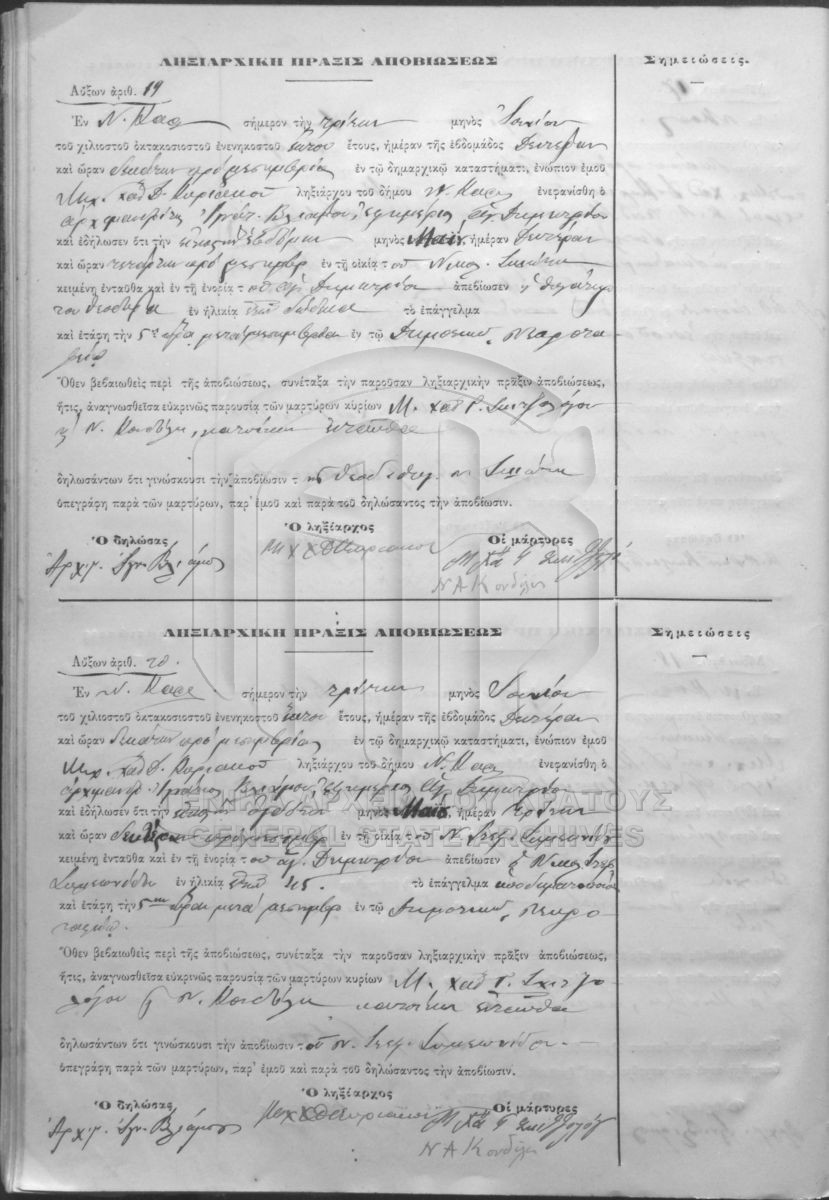 ΛΗΞΙΑΡΧΙΚΗ ΠΡΑΞΙΣ ΑΠΟΒΙΩΣΕΩΣ
Σημειώσεις.
Αὔξων ἀριθ. 19
Ἐν Ν. σήμερον τὴν τρίτην μηνὸς Ἰουνίου
τοῦ χιλιοστοῦ ὀκτακοσιοστοῦ ἐνενηκοστοῦ ἕκτου ἔτους, ἡμέραν τῆς ἑβδομάδος Δευτέραν
καὶ ὥραν δεκάτην πρὸ μεσημβρίας ἐν τῷ δημαρχικῷ καταστήματι, ἐνώπιον ἐμοῦ
Μιχ. Χαδ Κυριακοῦ ληξιάρχου τοῦ δήμου Ν. ἐνεφανίσθη ὁ
ἀρχιμανδρίτης Ἰγνάτ. Βλιάμος, ἐφημέριος Ἁγ. Δημητρίου
καὶ ἐδήλωσεν ὅτι τὴν εἰκοστὴν ἑβδόμην μηνὸς Μαΐου, ἡμέραν Δευτέραν
καὶ ὥραν τετάρτην πρὸ μεσημβρ ἐν τῇ οἰκίᾳ τοῦ Νικ.
κειμένῃ ἐνταῦθα καὶ ἐν τῇ ἐνορίᾳ τοῦ ἁγ. Δημητρίου ἀπεβίωσεν ἡ θυγάτηρ
του Θεοδώρα ἐν ἡλικίᾳ ἐτῶν δώδεκα τὸ ἐπάγγελμα
καὶ ἐτάφη τὴν 5 μετὰ μεσημβρίαν ἐν τῷ Δημοτικῷ Νεκροτα
φείῳ
Ὅθεν βεβαιωθεὶς περὶ τῆς ἀποβιώσεως, συνέταξα τὴν παροῦσαν ληξιαρχικὴν πρᾶξιν ἀποβιώσεως,
ἥτις, ἀναγνωσθεῖσα εὐκρινῶς παρουσίᾳ τῶν μαρτύρων κυρίων Μ. Χαδ Γ.
Ν. Κονδύλη, κατοίκων ἐνταῦθα
δηλωσάντων ὅτι γινώσκουσι τὴν ἀποβίωσιν τῆς
ὑπεγράφη παρὰ τῶν μαρτύρων, παρ' ἐμοῦ καὶ παρὰ τοῦ δηλώσαντος τὴν ἀποβίωσιν.
Ὁ δηλώσας
Ὁ ληξίαρχος
Οἱ μάρτυρες
Ἀρχιμ. Ἰγν. Βλιάμος
Ν Α Κονδύλης
ΛΗΞΙΑΡΧΙΚΗ ΠΡΑΞΙΣ ΑΠΟΒΙΩΣΕΩΣ
Σημειώσεις
Αὔξων ἀριθ. 20.
Ἐν Ν. σήμερον τὴν τρίτην μηνὸς Ἰουνίου
τοῦ χιλιοστοῦ ὀκτακοσιοστοῦ ἐνενηκοστοῦ ἕκτου ἔτους, ἡμέραν τῆς ἑβδομάδος Δευτέραν
καὶ ὥραν δεκάτην πρὸ μεσημβρίας ἐν τῷ δημαρχικῷ καταστήματι, ἐνώπιον ἐμοῦ
Μιχ. Χαδ Κυριακοῦ ληξιάρχου τοῦ δήμου Ν. ἐνεφανίσθη ὁ
ἀρχιμανδ Ἰγνάτιος Βλιάμος, ἐφημέριος Ἁγ. Δημητρίου
ΓΕΝΙΚΑ ΑΡΧΕΙΑ ΤΟΥ ΚΡΑΤΟΥΣ
καὶ ἐδήλωσεν ὅτι τὴν εἰκοστὴν ὀγδόην μηνὸς Μαΐου, ἡμέραν Τρίτην
GENERAL STATE ARCHIVES
καὶ ὥραν δευτέραν πρὸ μεσημβρ ἐν τῇ οἰκίᾳ τοῦ Ν. Συμεωνίδου
κειμένῃ ἐνταῦθα καὶ ἐν τῇ ἐνορίᾳ τοῦ ἁγ. Δημητρίου ἀπεβίωσεν ὁ Νικ.
Συμεωνίδης ἐν ἡλικίᾳ ἐτῶν 45. τὸ ἐπάγγελμα ὑποδηματοποιός
καὶ ἐτάφη τὴν 5ην ὥραν μετὰ μεσημβρ ἐν τῷ Δημοτικῷ Νεκρο
ταφείῳ.
Ὅθεν βεβαιωθεὶς περὶ τῆς ἀποβιώσεως, συνέταξα τὴν παροῦσαν ληξιαρχικὴν πρᾶξιν ἀποβιώσεως,
ἥτις, ἀναγνωσθεῖσα εὐκρινῶς παρουσίᾳ τῶν μαρτύρων κυρίων Μ. Χαδ Γ.
Ν. Κονδύλη κατοίκων ἐνταῦθα
δηλωσάντων ὅτι γινώσκουσι τὴν ἀποβίωσιν τοῦ Ν. Συμεωνίδου.
ὑπεγράφη παρὰ τῶν μαρτύρων, παρ' ἐμοῦ καὶ παρὰ τοῦ δηλώσαντος τὴν ἀποβίωσιν.
Ὁ δηλώσας
Ὁ ληξίαρχος
Οἱ μάρτυρες
Ἀρχιμ. Ἰγν. Βλιάμος
Ν Α Κονδύλης